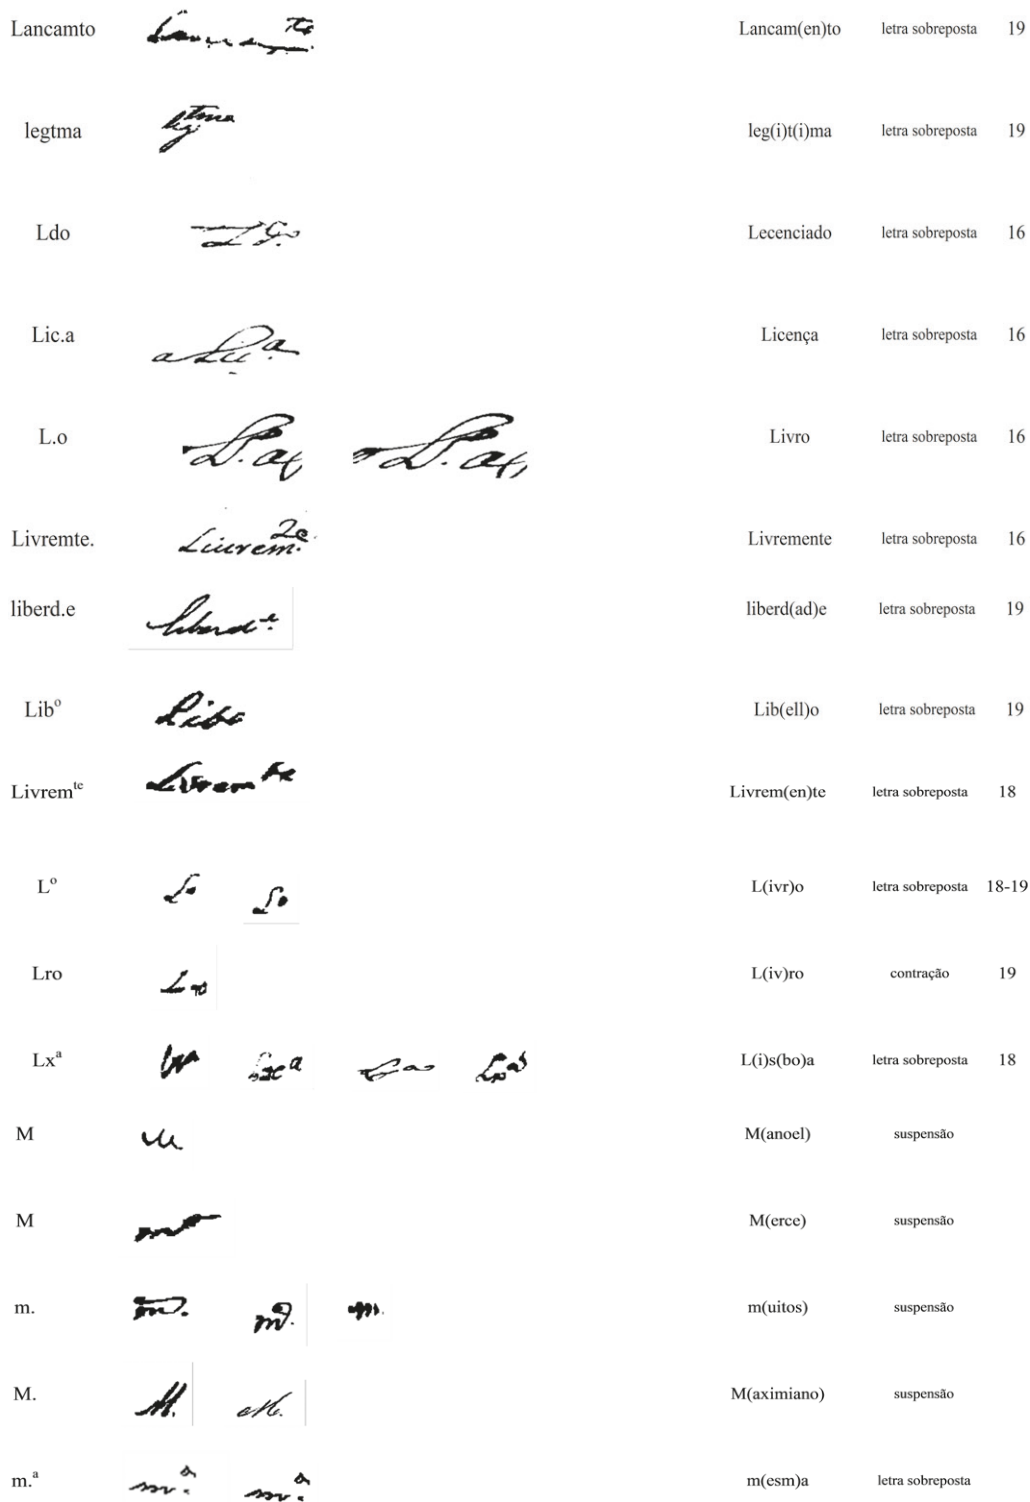 Lancamto Lancam(en)to letra sobreposta 19
legtma legtma leg(i)t(i)ma letra sobreposta 19
Ldo Lecenciado letra sobreposta 16
Lic.a a Lic.a Licença letra sobreposta 16
L.o Livro letra sobreposta 16
Livremte. Liurem.te Livremente letra sobreposta 16
liberd.e liberd.e liberd(ad)e letra sobreposta 19
Libº Libo Lib(ell)o letra sobreposta 19
Livremᵗᵉ Livremᵗᵉ Livrem(en)te letra sobreposta 18
Lº Lo Lo L(ivr)o letra sobreposta 18-19
Lro Lro L(iv)ro contração 19
Lxᵃ Lxᵃ L(i)s(bo)a letra sobreposta 18
M M M(anoel) suspensão
M M(erce) suspensão
m. m. m. m. m(uitos) suspensão
M. M. M. M(aximiano) suspensão
m.ᵃ m.ᵃ m.ᵃ m(esm)a letra sobreposta